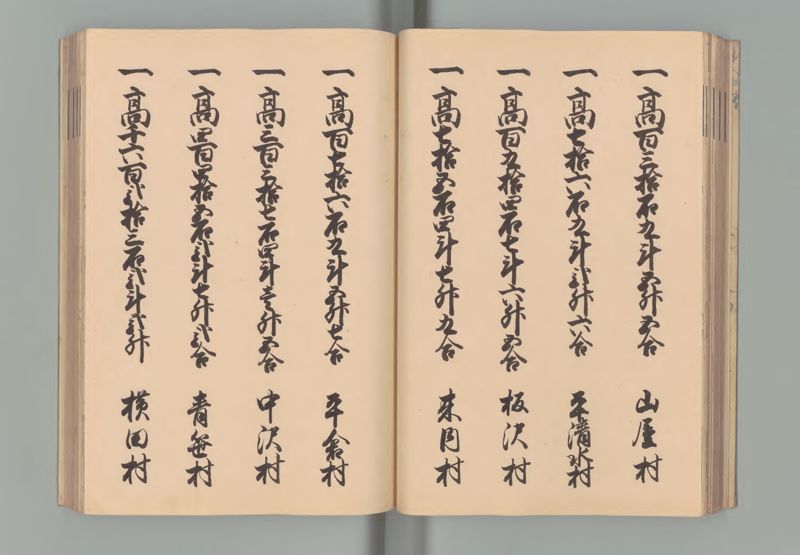 一高百三拾石九斗五升五合 山屋村
一高七拾六石九斗弐升六合 平清水村
一高百九拾四石七斗六升五合 板沢村
一高七拾五石四斗七升九合 来内村
一高百七拾六石九斗五升七合 平倉村
一高三百三拾七石四斗壱升五合 中沢村
一高四百四拾五石弐斗七升弐合 青笹村
一高千六百弐拾三石弐斗弐升 横田村